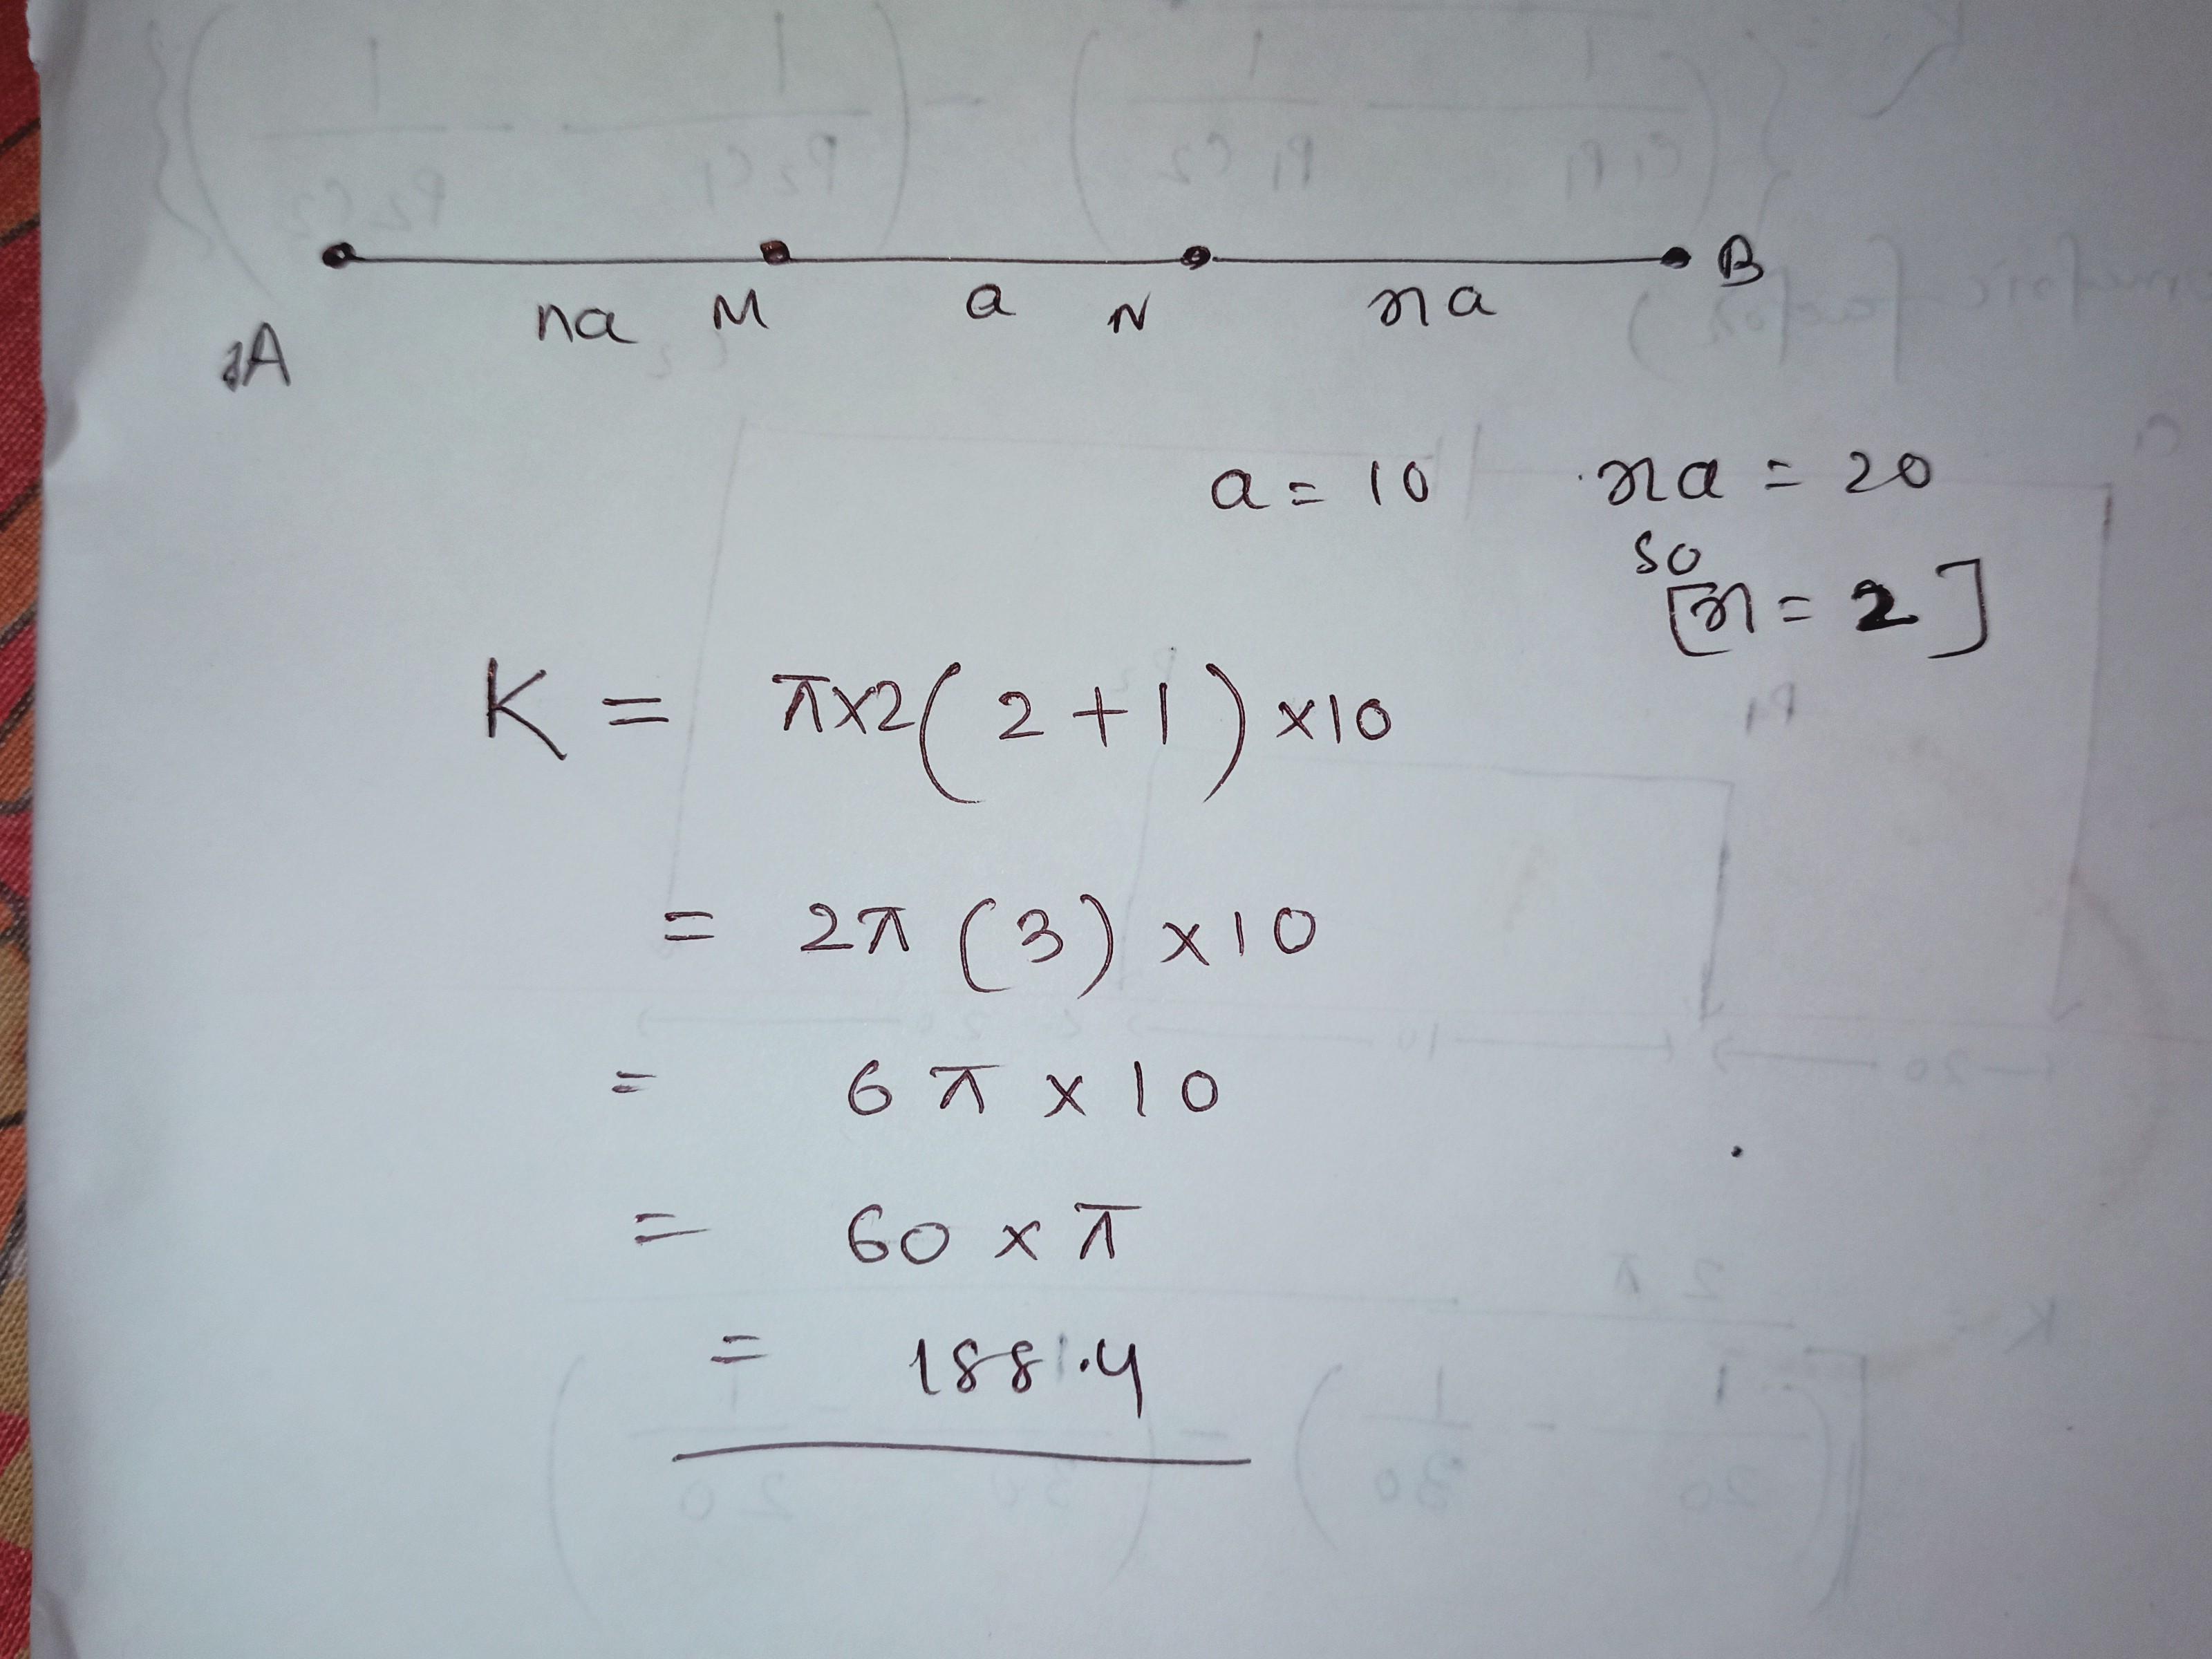 A na M a N na B
a = 10 na = 20
so
[n = 2]
K = π×2(2+1)×10
= 2π(3)×10
= 6π×10
= 60×π
= 188.4